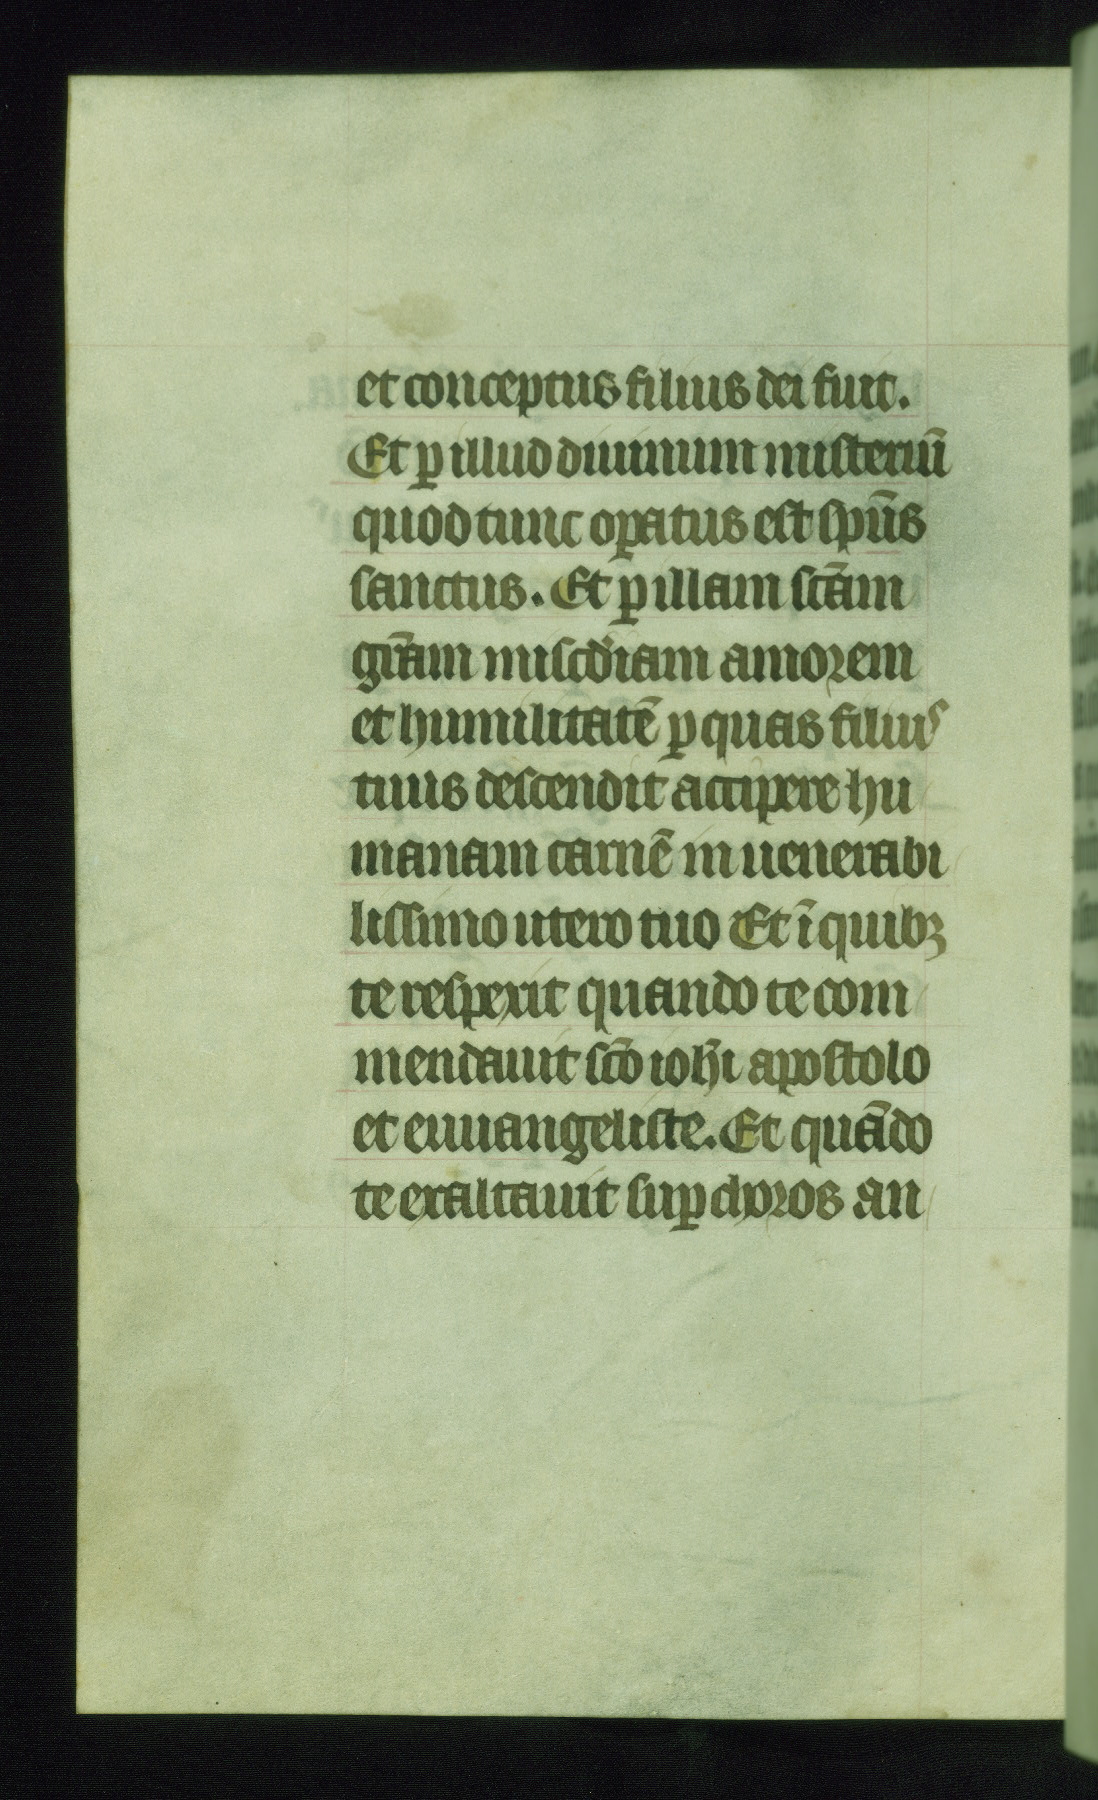 et conceptus filius dei fuit.
Et ꝑ illud diuinum misteriū
quod tunc oꝑatus est spūs
sanctus. Et ꝑ illam sc̄am
gr̄am misc̄diam amorem
et humilitatē ꝑ quas filius
tuus descendit accipere hu
manam carnē in uenerabi
lissimo utero tuo Et ī quibꝫ
te respexit quando te com
mendauit sc̄o ioh̄i apostolo
et euuangeliste. Et quādo
te exaltauit suꝑ choros an